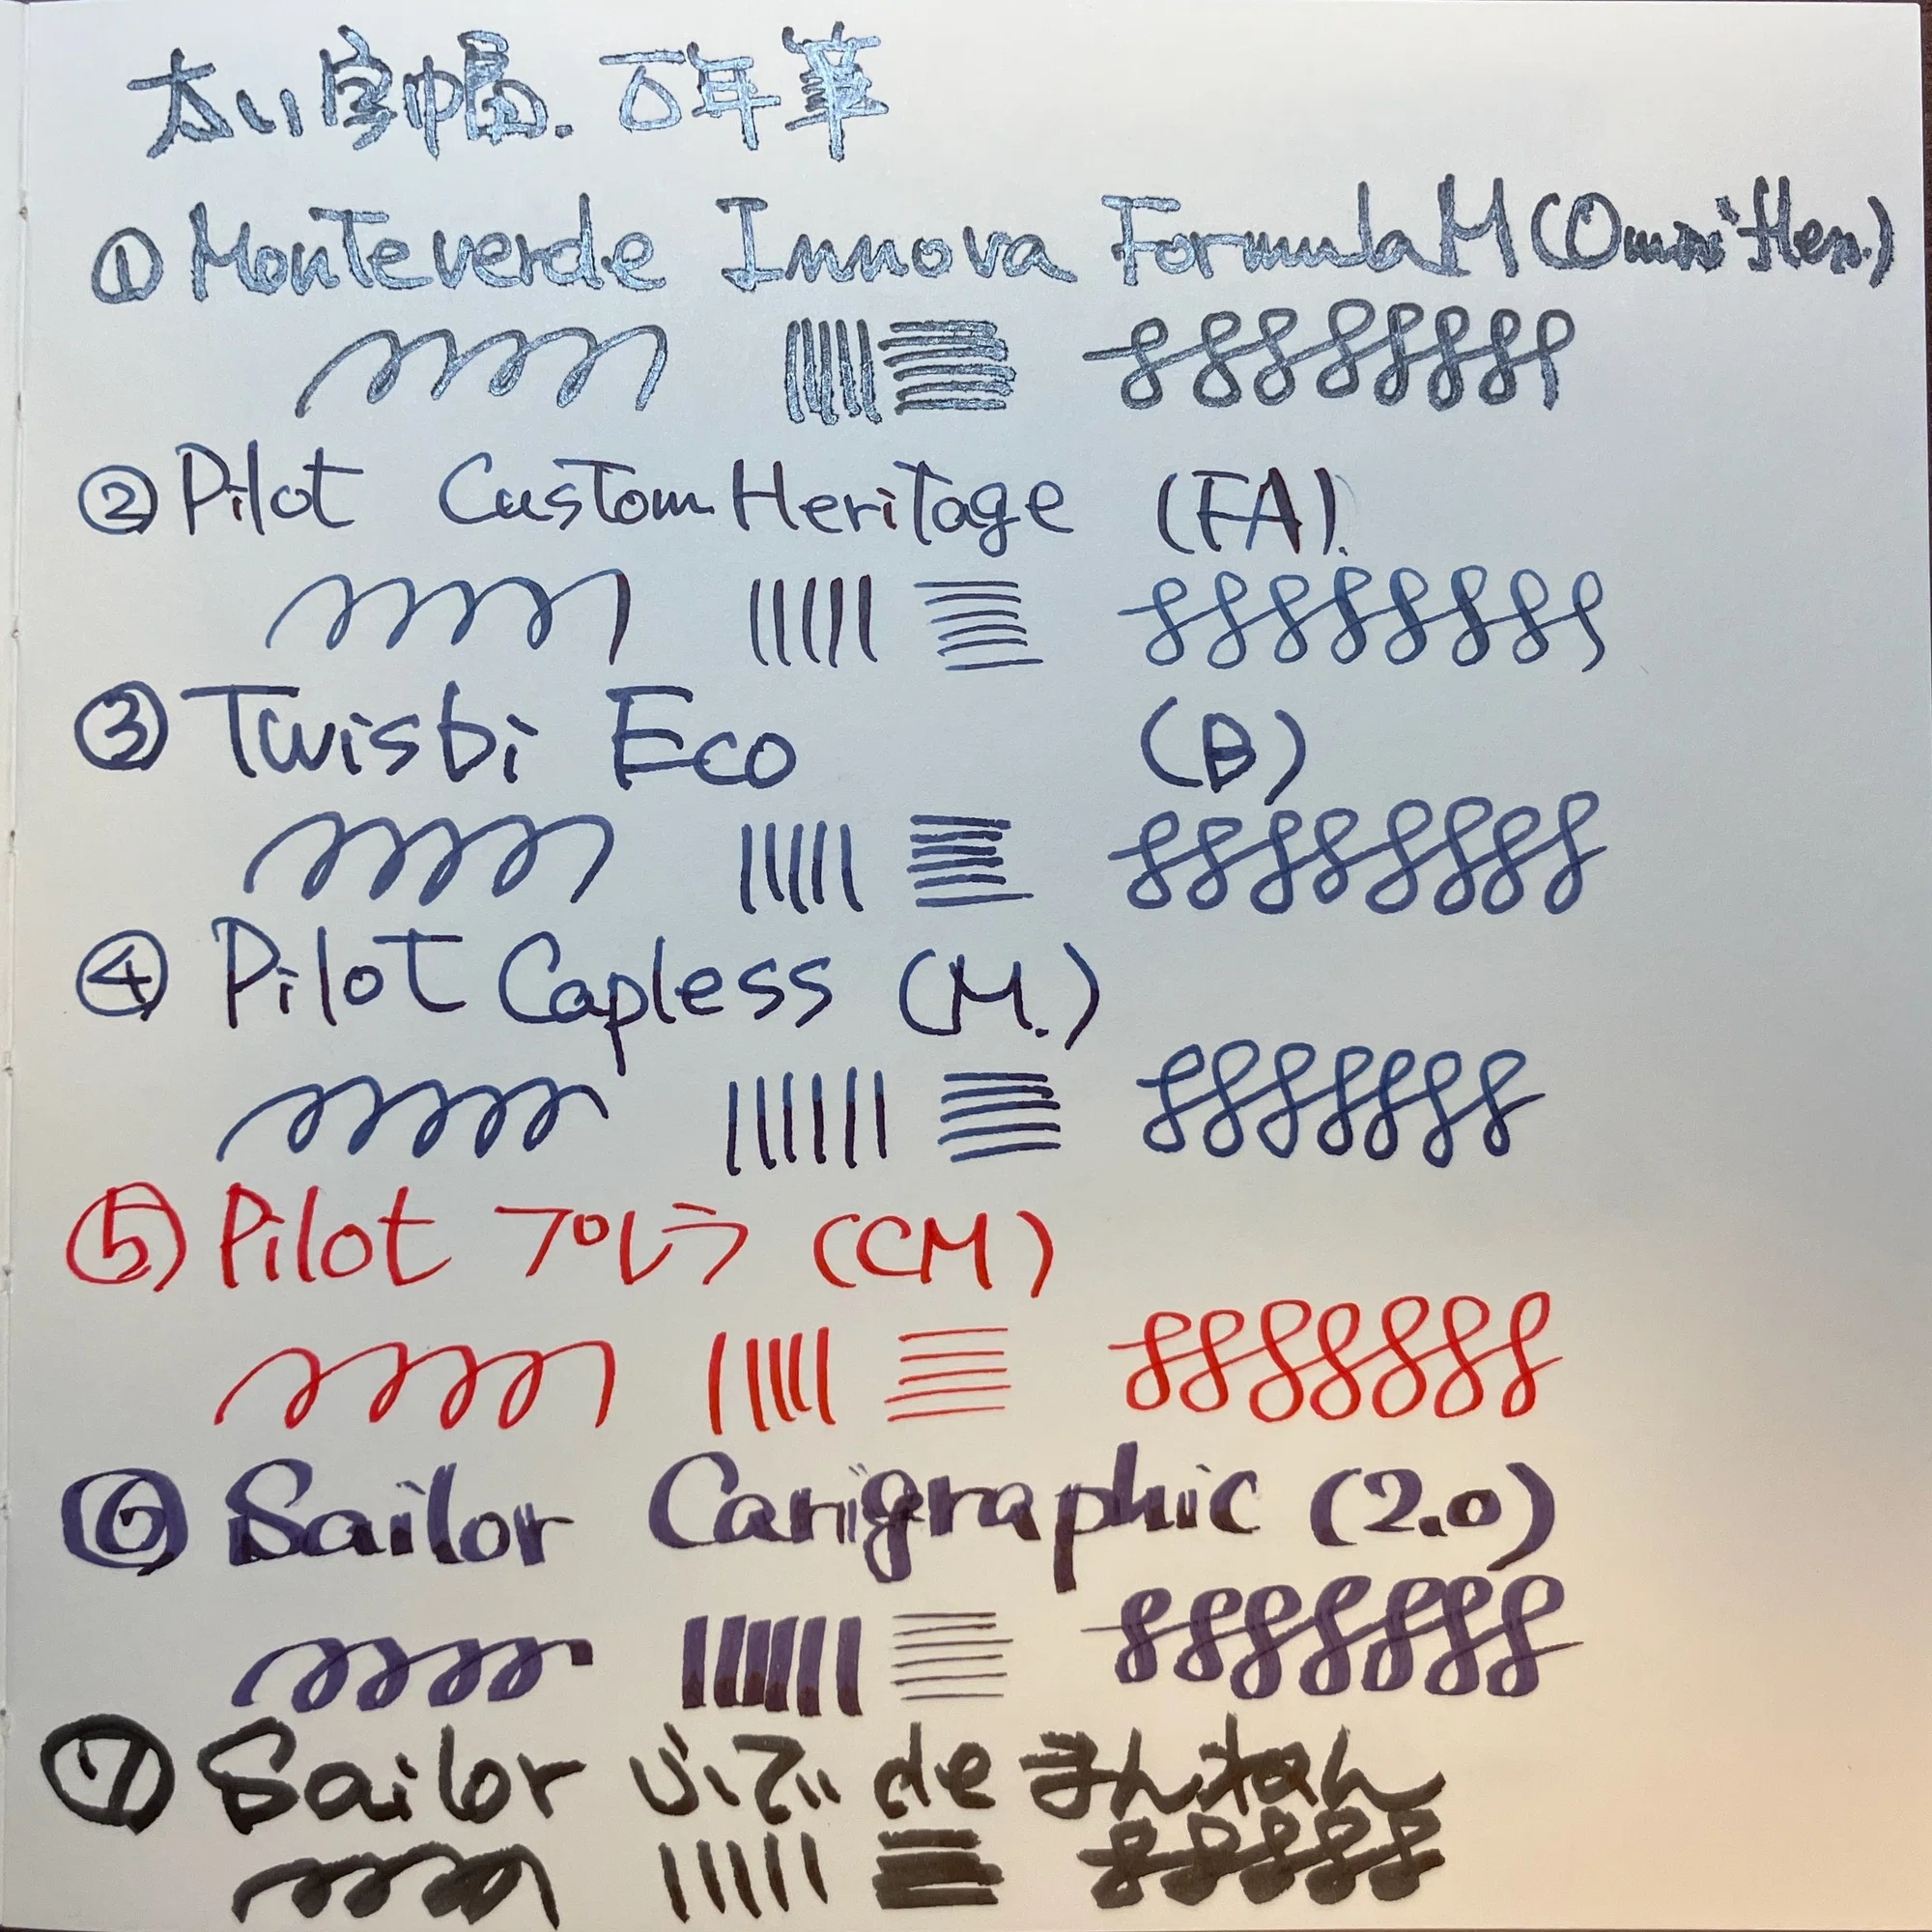 太い字幅.万年筆
① Monteverde Innova Formula M (Omniflex.)
② Pilot Custom Heritage (FA).
③ Twisbi Eco (B)
④ Pilot Capless (M.)
⑤ Pilot プレラ (CM)
⑥ Sailor Carigraphic (2.0)
⑦ Sailor ふでde まんねん